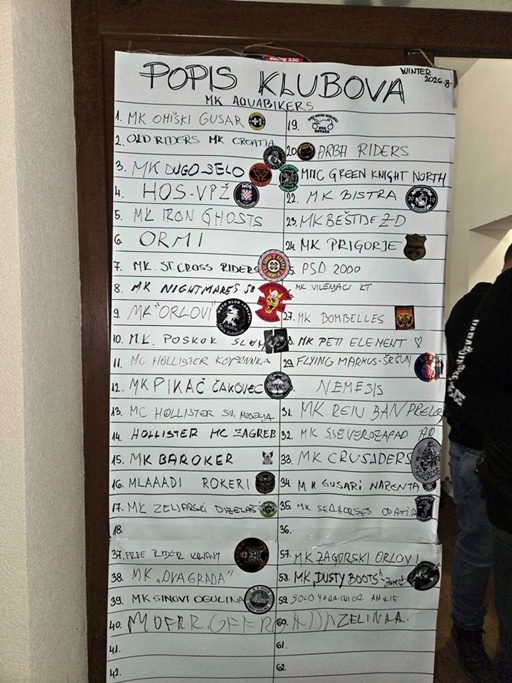 POPIS KLUBOVA
WINTER
2026.g.
MK AQUABIKERS
1. MK OMIŠKI GUSAR
2. OLD RIDERS MK CROATIA
3. MK DUGO SELO
4. HOS-VPŽ
5. MK IRON GHOSTS
6. ORMI
7. MK. ST. CROSS RIDERS
8. MK NIGHTMARES SB
9. MK "ORLOVI"
10. MK. POSKOK
11. MC HOLLISTER
12. MK PIKAČ ČAKOVEC
13. MC HOLLISTER
14. HOLLISTER MC ZAGREB
15. MK BAROKER
16. MLAAADI ROKERI
17. MK
18.
19.
20. RIDERS
MC GREEN KNIGHT NORTH
22. MK BISTRA
23. MK BEŠTIJE ZD
24. MK PRIGORJE
5. PSD 2000
MK VILENJACI KT
27. MK BOMBELLES
MK PETI ELEMENT ♡
29. FLYING
NEMESIS
31. MK
32. MK SJEVEROZAPAD
33. MK CRUSADERS
34 MK GUSARI NARENTA
35. MK SEAHORSES
36.
37. FREE RIDER
38. MK „DVA GRADA"
39. MK SINOVI OGULINA
40.
41.
42.
57. MK ZAGORSKI ORLOVI
58. MK „DUSTY BOOTS"
59. SOLO
60. ZELINA
61.
62.